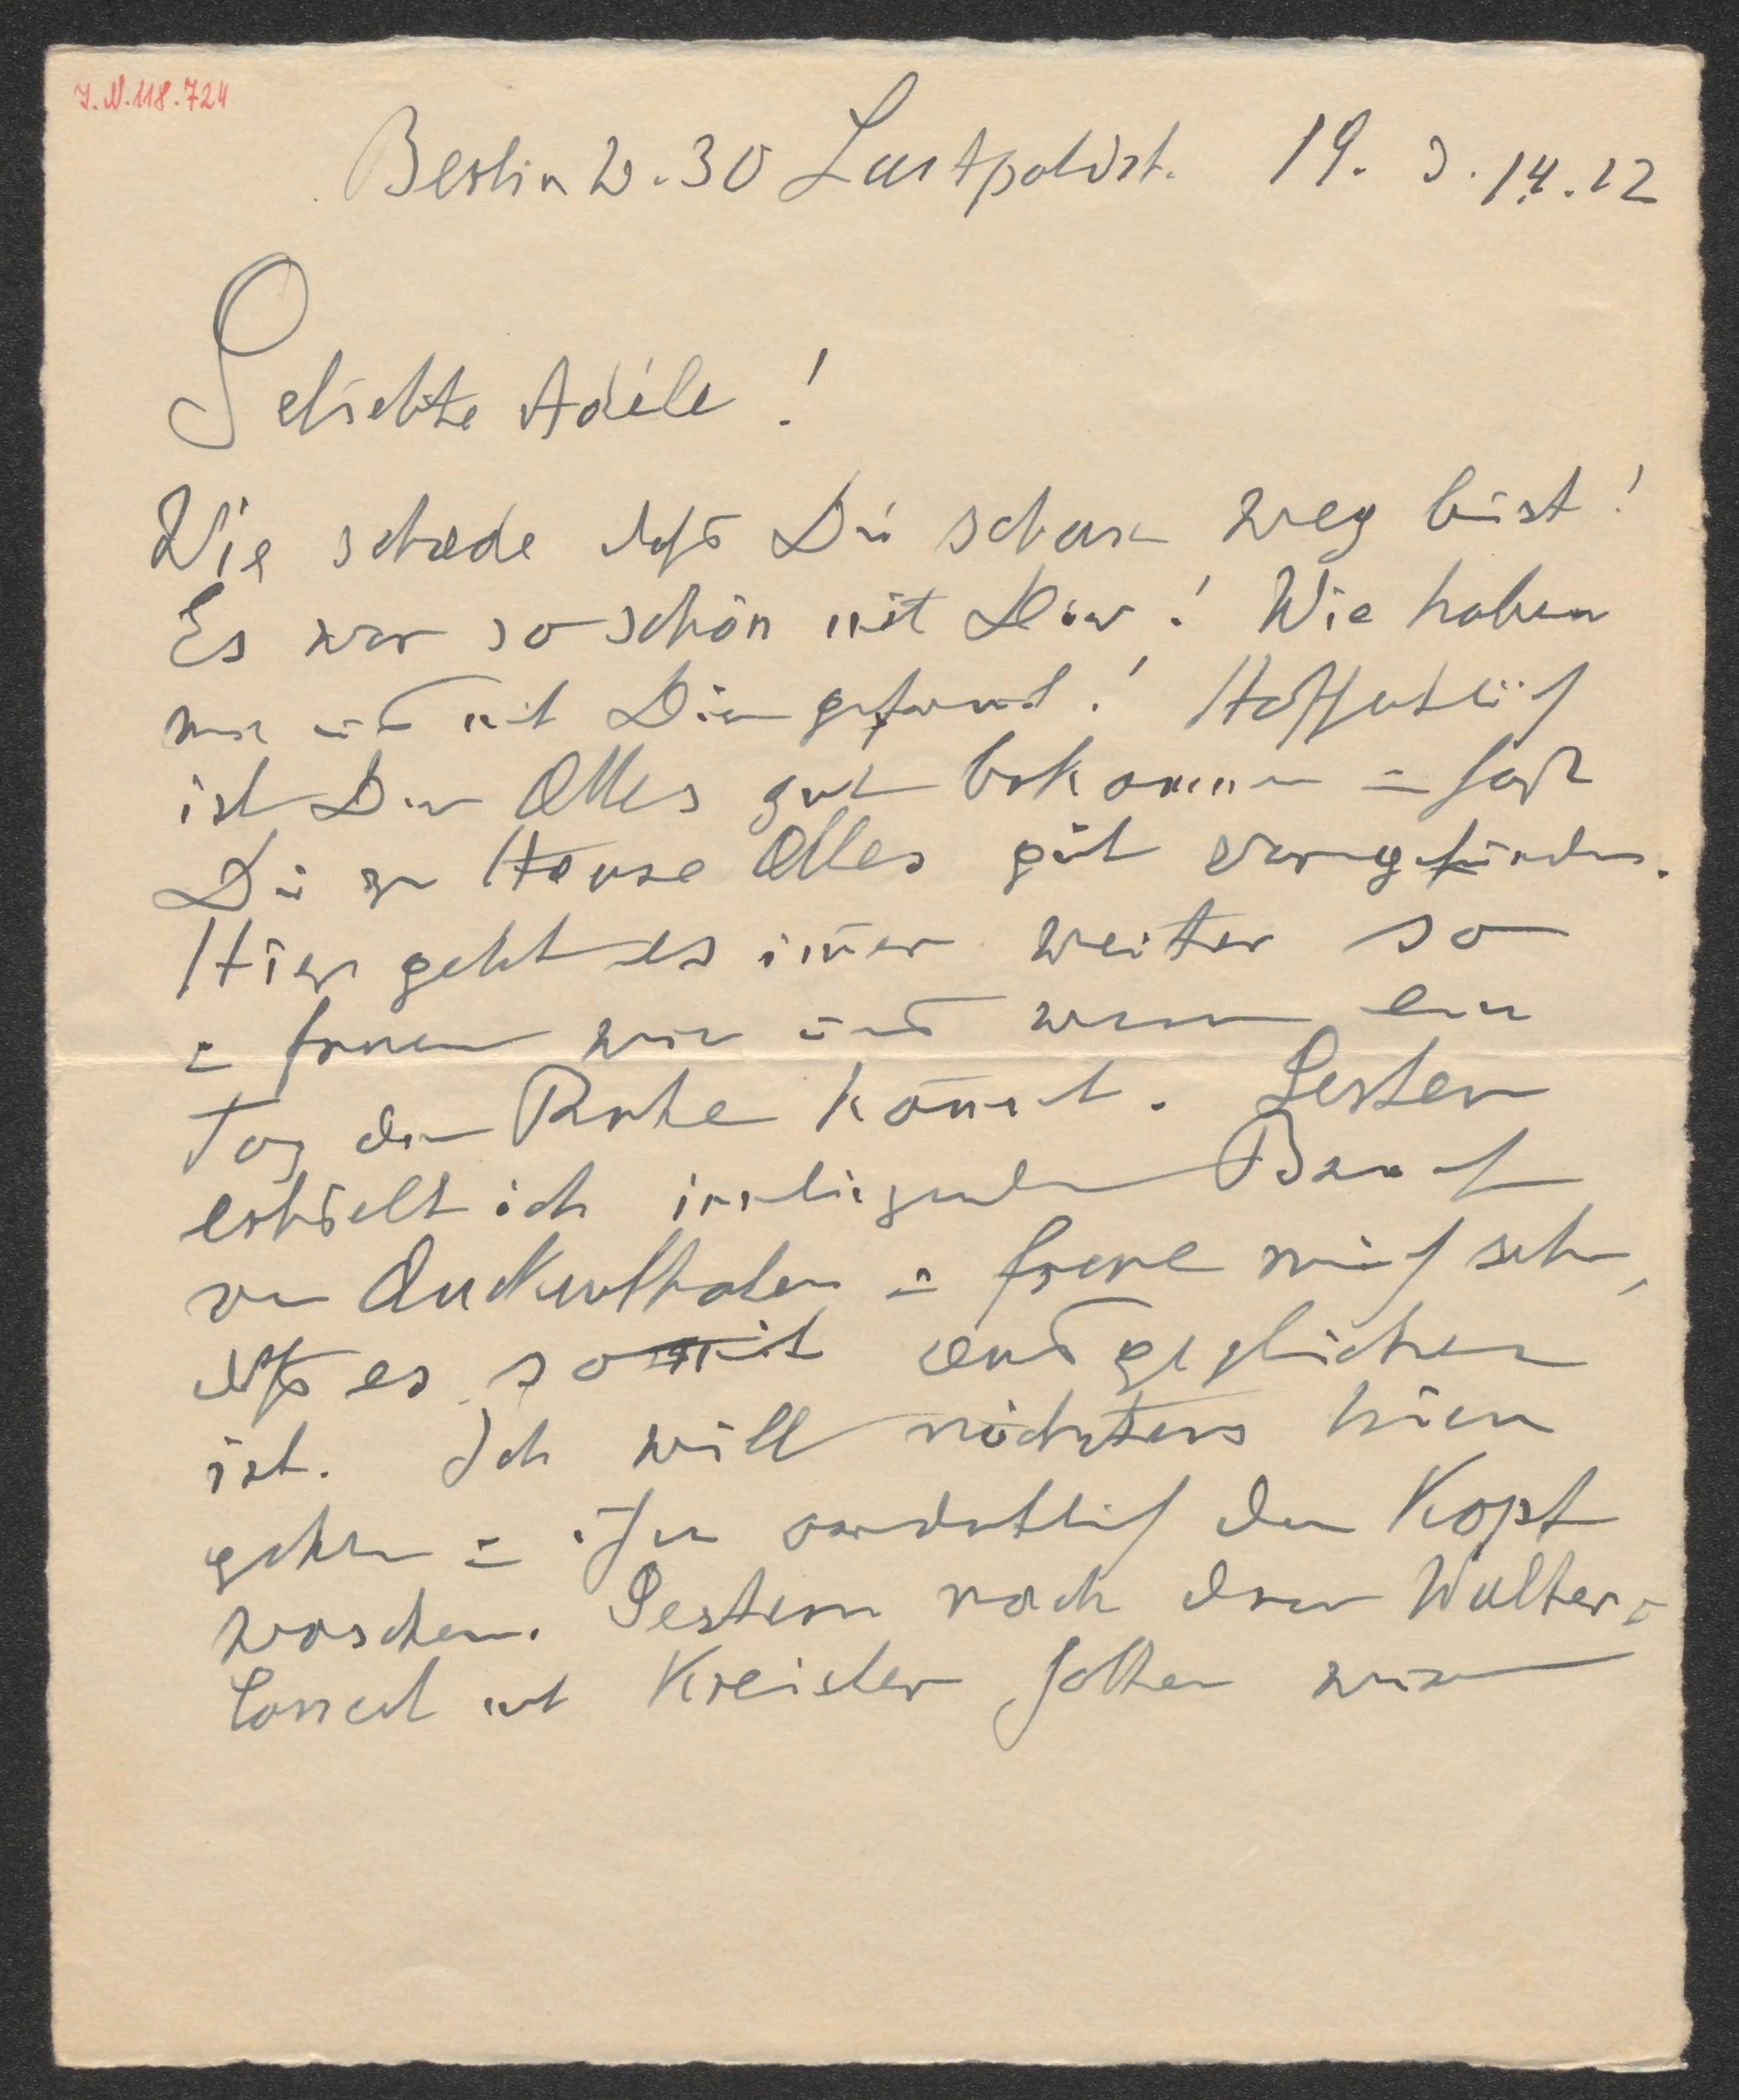 I.N. 118.724
Berlin W. 30 Luitpoldst. 19. d. 14. 12
Geliebte Adéle!
Wie schade daß Du schon weg bist!
Es war so schön mit Dir! Wie haben
wir uns mit Dir gefreut! Hoffentlich
ist Dir Alles gut bekommen u hast
Du zu Hause Alles gut vorgefunden.
Hier geht es im̄er weiter so
u freuen wir uns wenn ein
Tag der Ruhe kom̄t. Gestern
erhielt ich inliegenden Brief
von u freue mich sehr,
daß es somit ausgeglichen
ist. Ich will nächstens hin
gehen u ihr ordentlich den Kopf
waschen. Gestern nach dem Walter-
Concert mit Kreisler hatten wir